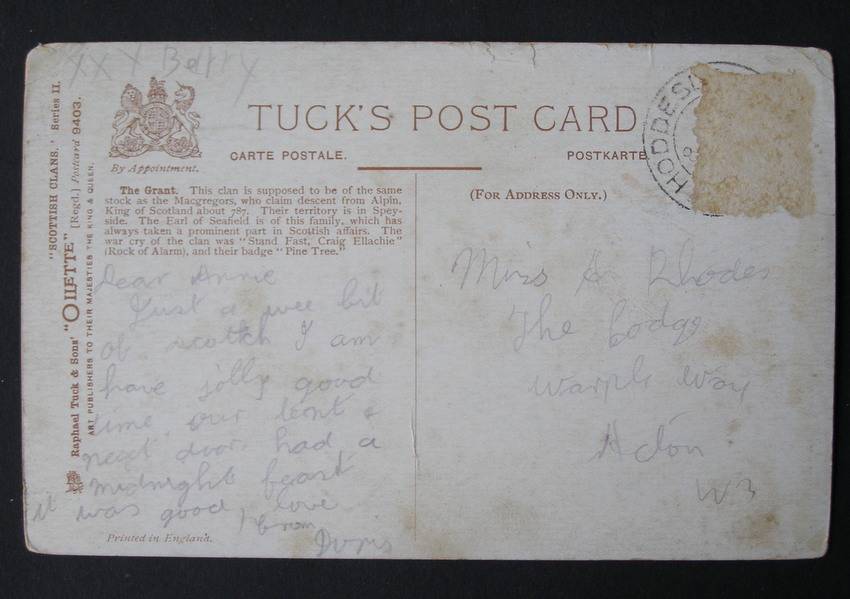 XXX Betty
"SCOTTISH CLANS." Series II.
Raphael Tuck & Sons' "OILETTE" [Regd.] Postcard 9403.
ART PUBLISHERS TO THEIR MAJESTIES THE KING & QUEEN.
By Appointment.
TUCK'S POST CARD
CARTE POSTALE. POSTKARTE
HODDESD
8
The Grant. This clan is supposed to be of the same
stock as the Macgregors, who claim descent from Alpin,
King of Scotland about 787. Their territory is in Spey-
side. The Earl of Seafield is of this family, which has
always taken a prominent part in Scottish affairs. The
war cry of the clan was "Stand Fast, Craig Ellachie"
(Rock of Alarm), and their badge "Pine Tree."
Dear Annie
Just a wee bit
of scotch I am
have jolly good
time our tent &
next door had a
midnight feast
it was good love
from
Doris
Printed in England.
(FOR ADDRESS ONLY.)
Miss A Rhodes
The Lodge
Warple Way
Acton
W3